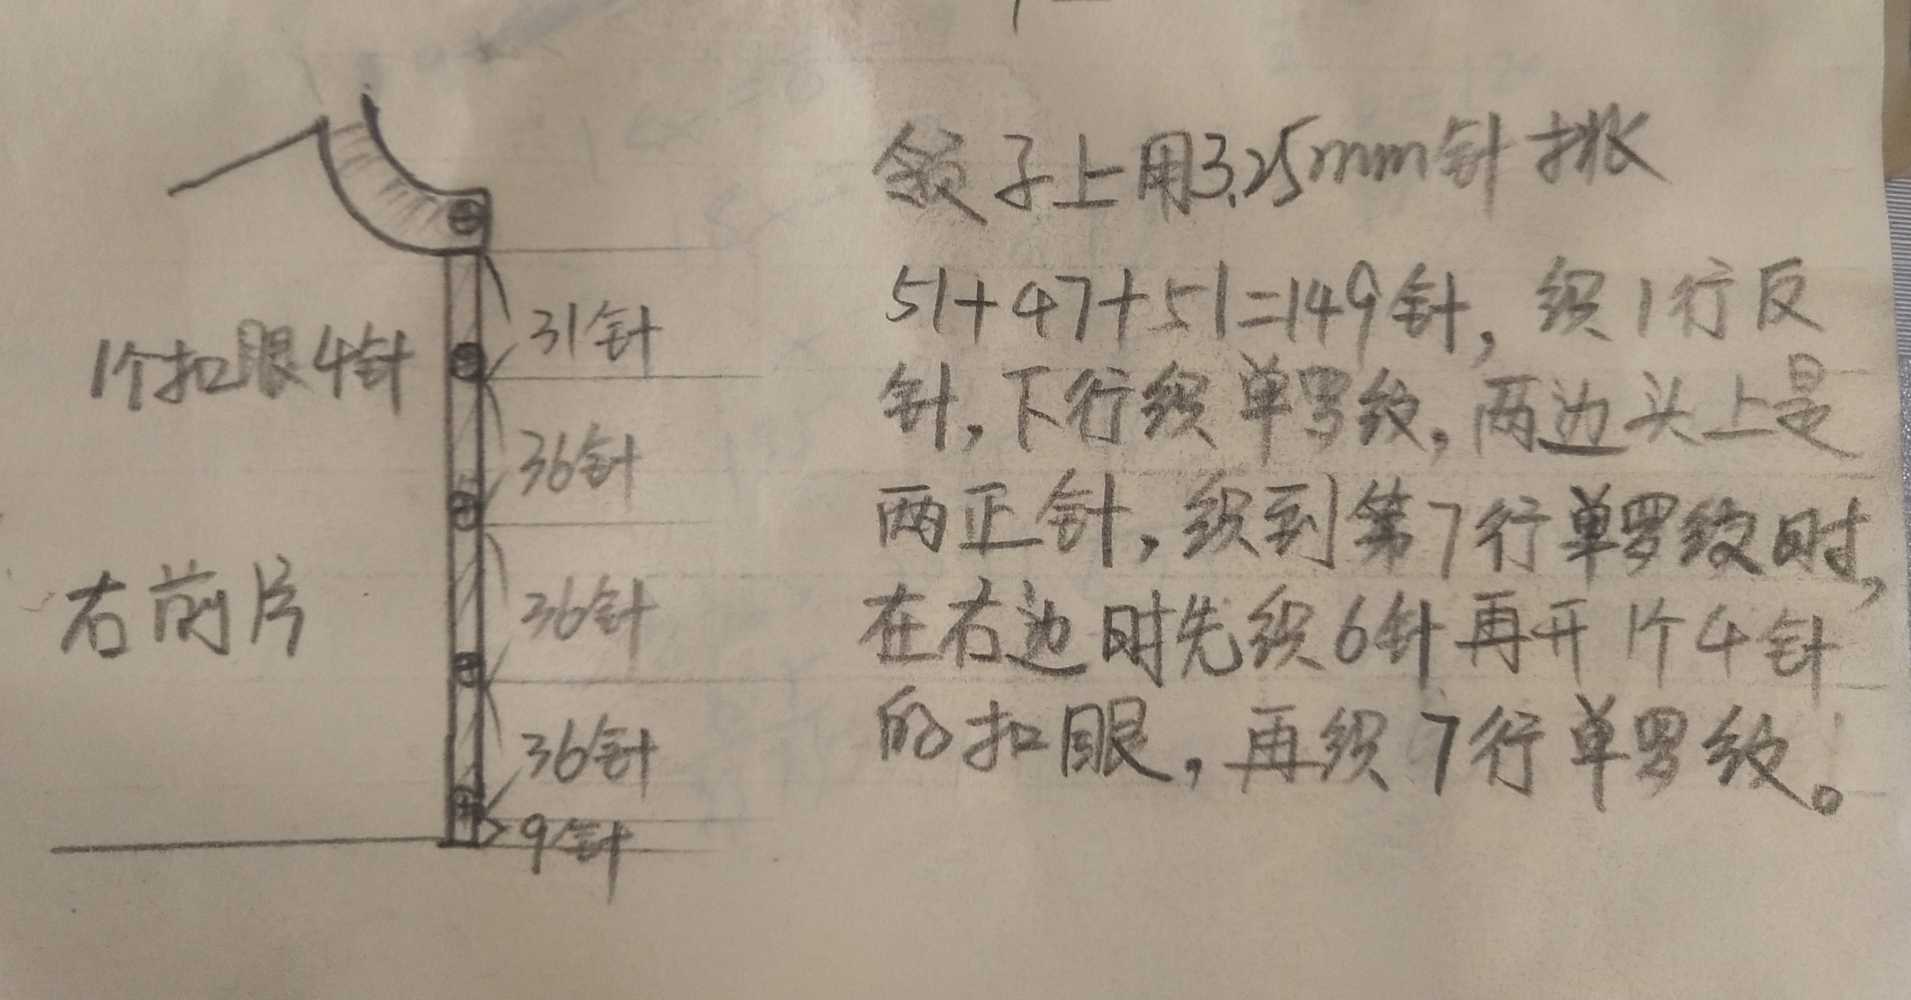 领子上用3.25mm针挑
51+47+51=149针，织1行反
针，下行织单罗纹，两边头上是
两正针，织到第7行单罗纹时，
在右边时先织6针再开1个4针
的扣眼，再织7行单罗纹。
1个扣眼4针
右前片
31针
36针
36针
36针
9针